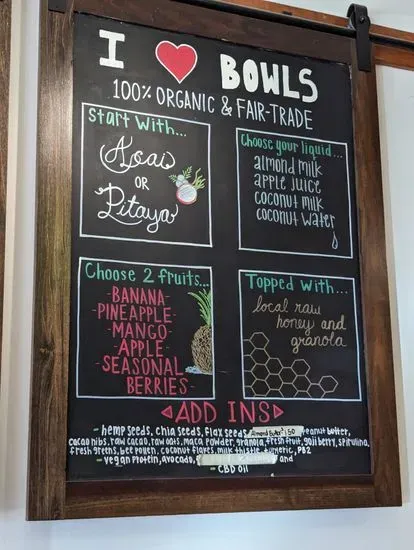 I ♥ BOWLS
100% ORGANIC & FAIR-TRADE
Start With...
Acai
OR
Pitaya
Choose your liquid...
almond milk
apple juice
coconut milk
coconut water
Choose 2 fruits...
-BANANA-
-PINEAPPLE-
-MANGO-
-APPLE-
-SEASONAL
BERRIES-
Topped With...
local raw
honey and
granola
ADD INS
- hemp seeds, chia seeds, flax seeds, Almond Butter peanut butter,
cacao nibs, raw cacao, raw oats, maca powder, granola, fresh fruit, goji berry, spirulina,
fresh greens, bee pollen, coconut flakes, milk thistle, tumeric, PB2
- vegan protein, avocado, and
- CBD OIL